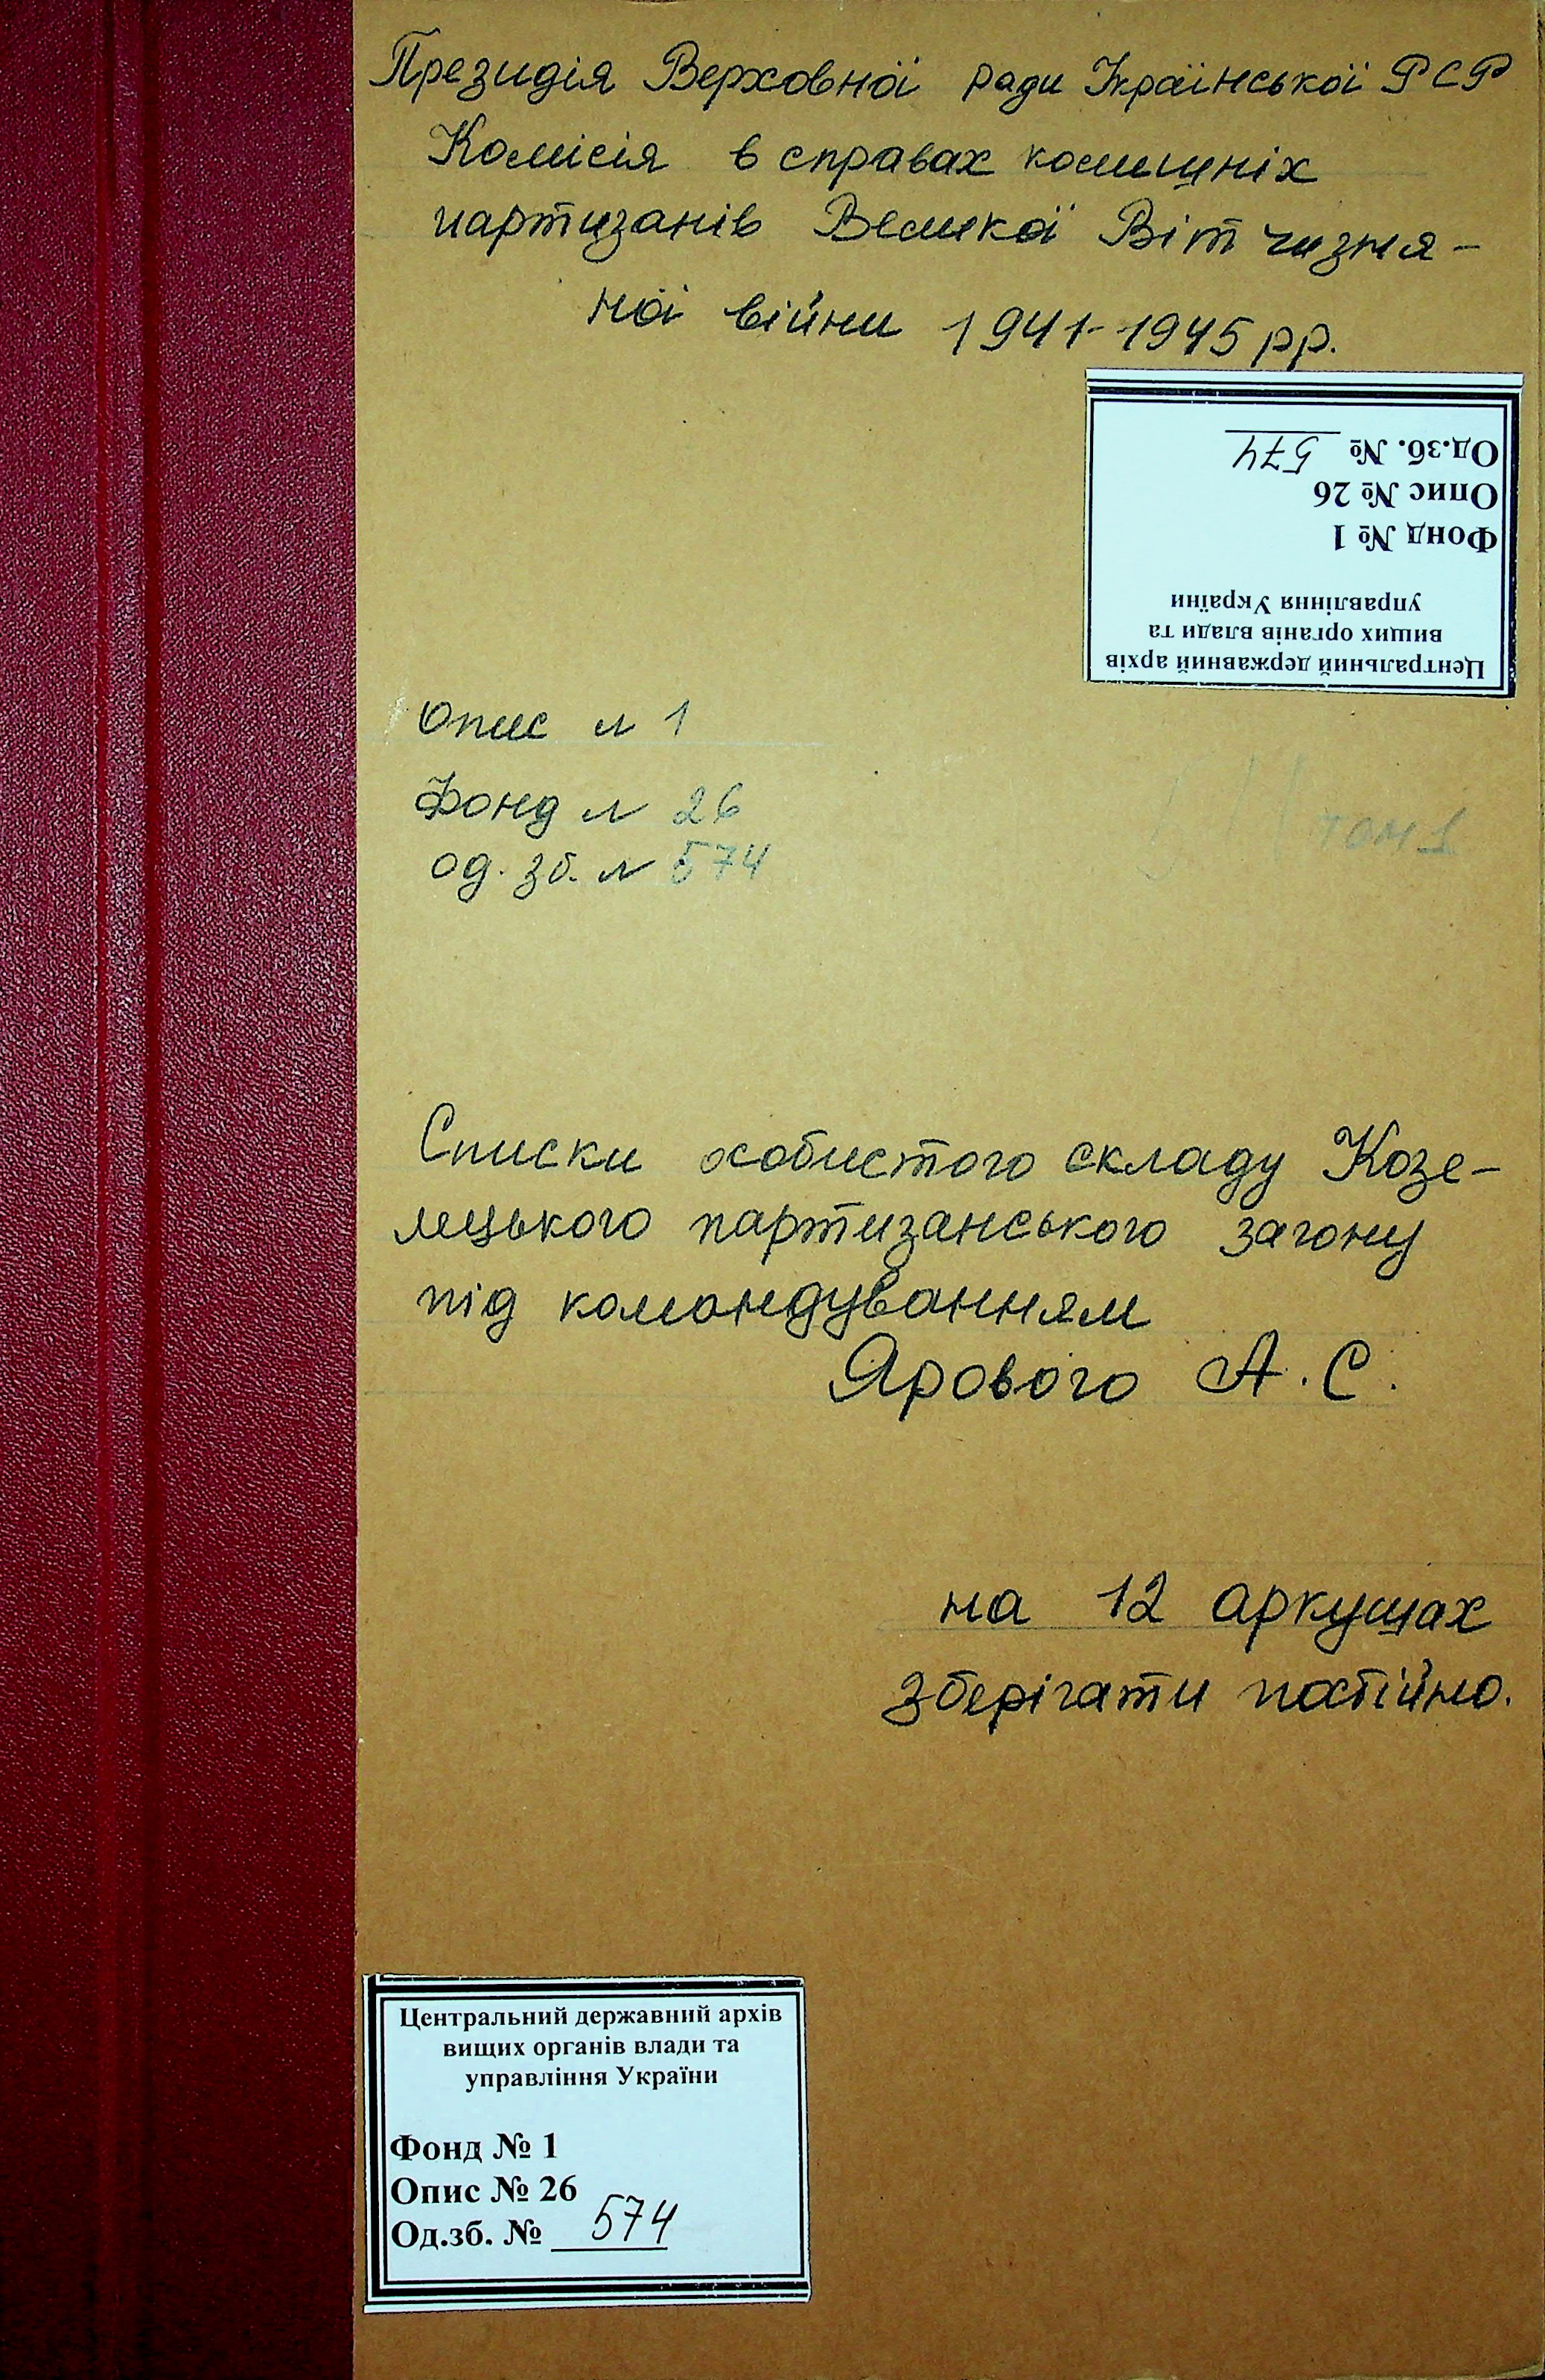 Президія Верховної ради Української РСР
Комісія в справах колишніх
партизанів Великої Вітчизня-
ної війни 1941-1945 рр.
Центральний державний архів
вищих органів влади та
управління України
Фонд № 1
Опис № 26
Од.зб. № 574
Опис № 1
Фонд № 26
од. зб. № 574
том 1
Списки особистого складу Козе-
лецького партизанського загону
під командуванням
Ярового А. С.
на 12 аркушах
зберігати постійно.
Центральний державний архів
вищих органів влади та
управління України
Фонд № 1
Опис № 26
Од.зб. № 574